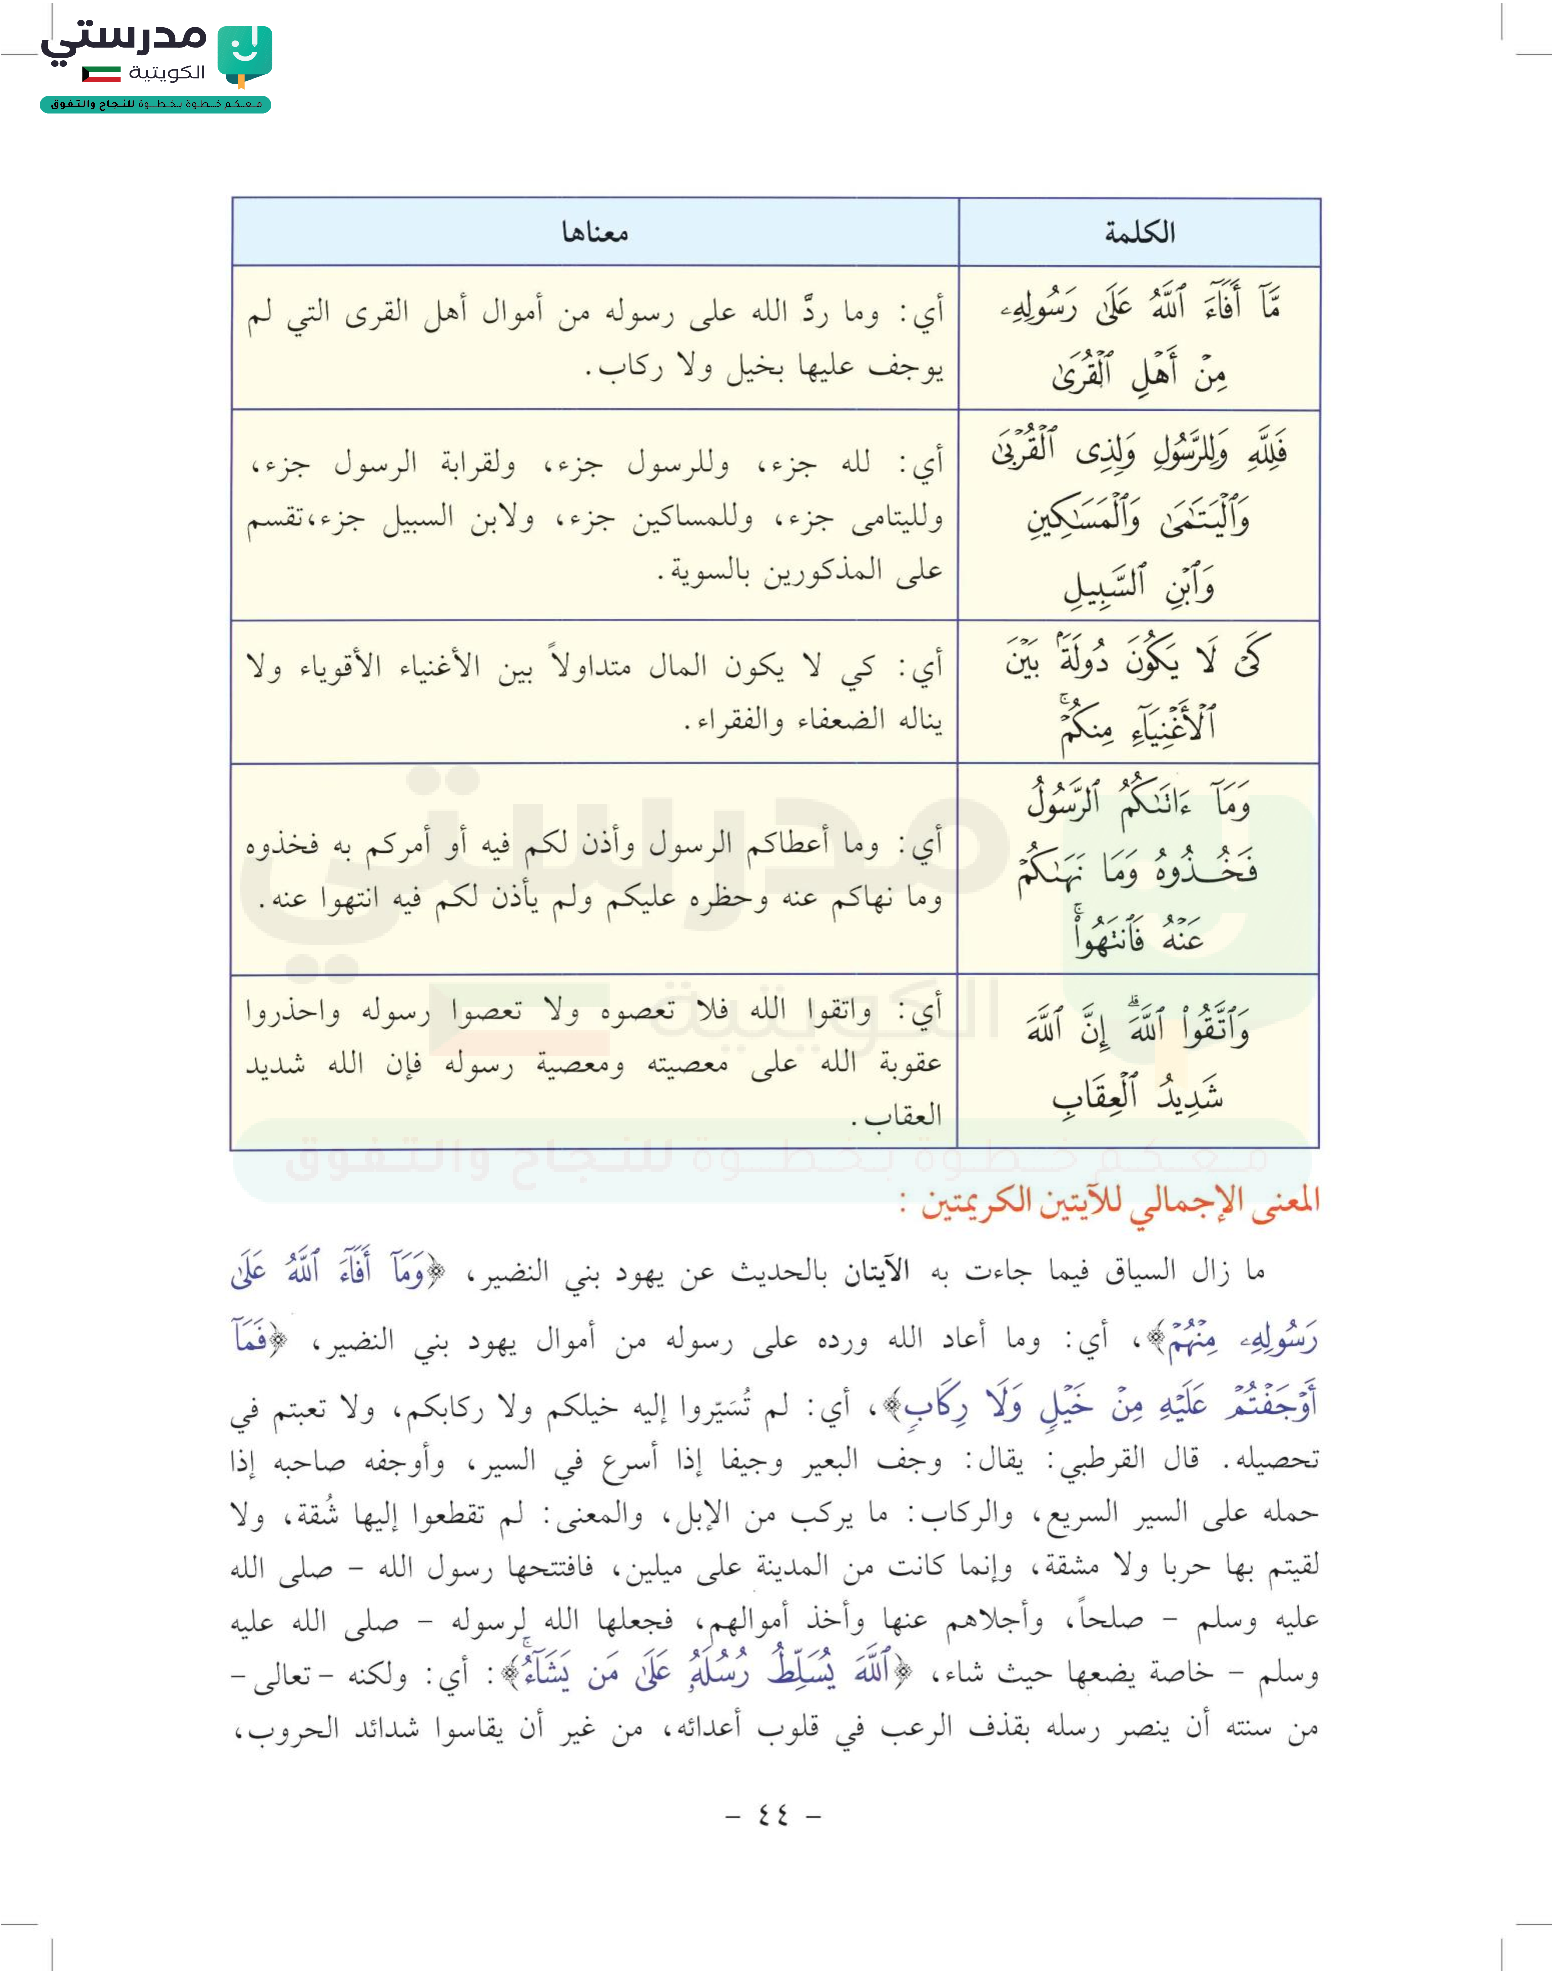 مدرستي
الكويتية
معكم خطوة بخطوة للنجاح والتفوق
الكلمة	معناها
مَّآ أَفَآءَ ٱللَّهُ عَلَىٰ رَسُولِهِۦ
مِنْ أَهْلِ ٱلْقُرَىٰ
أي: وما ردَّ الله على رسوله من أموال أهل القرى التي لم
يوجف عليها بخيل ولا ركاب.
فَلِلَّهِ وَلِلرَّسُولِ وَلِذِى ٱلْقُرْبَىٰ
وَٱلْيَتَٰمَىٰ وَٱلْمَسَٰكِينِ
وَٱبْنِ ٱلسَّبِيلِ
أي: لله جزء، وللرسول جزء، ولقرابة الرسول جزء،
ولليتامى جزء، وللمساكين جزء، ولابن السبيل جزء،تقسم
على المذكورين بالسوية.
كَىْ لَا يَكُونَ دُولَةًۢ بَيْنَ
ٱلْأَغْنِيَآءِ مِنكُمْ ۚ
أي: كي لا يكون المال متداولاً بين الأغنياء الأقوياء ولا
يناله الضعفاء والفقراء.
وَمَآ ءَاتَىٰكُمُ ٱلرَّسُولُ
فَخُذُوهُ وَمَا نَهَىٰكُمْ
عَنْهُ فَٱنتَهُوا۟ ۚ
أي: وما أعطاكم الرسول وأذن لكم فيه أو أمركم به فخذوه
وما نهاكم عنه وحظره عليكم ولم يأذن لكم فيه انتهوا عنه.
وَٱتَّقُوا۟ ٱللَّهَ ۖ إِنَّ ٱللَّهَ
شَدِيدُ ٱلْعِقَابِ
أي: واتقوا الله فلا تعصوه ولا تعصوا رسوله واحذروا
عقوبة الله على معصيته ومعصية رسوله فإن الله شديد
العقاب.
مدرستي
الكويتية
معكم خطوة بخطوة للنجاح والتفوق
المعنى الإجمالي للآيتين الكريمتين :
ما زال السياق فيما جاءت به الآيتان بالحديث عن يهود بني النضير، ﴿وَمَآ أَفَآءَ ٱللَّهُ عَلَىٰ
رَسُولِهِۦ مِنْهُمْ﴾، أي: وما أعاد الله ورده على رسوله من أموال يهود بني النضير، ﴿فَمَآ
أَوْجَفْتُمْ عَلَيْهِ مِنْ خَيْلٍ وَلَا رِكَابٍ﴾، أي: لم تُسَيّروا إليه خيلكم ولا ركابكم، ولا تعبتم في
تحصيله. قال القرطبي: يقال: وجف البعير وجيفا إذا أسرع في السير، وأوجفه صاحبه إذا
حمله على السير السريع، والركاب: ما يركب من الإبل، والمعنى: لم تقطعوا إليها شُقة، ولا
لقيتم بها حربا ولا مشقة، وإنما كانت من المدينة على ميلين، فافتتحها رسول الله – صلى الله
عليه وسلم – صلحاً، وأجلاهم عنها وأخذ أموالهم، فجعلها الله لرسوله – صلى الله عليه
وسلم – خاصة يضعها حيث شاء، ﴿ٱللَّهَ يُسَلِّطُ رُسُلَهُۥ عَلَىٰ مَن يَشَآءُ ۚ﴾: أي: ولكنه –تعالى–
من سنته أن ينصر رسله بقذف الرعب في قلوب أعدائه، من غير أن يقاسوا شدائد الحروب،
– ٤٤ –